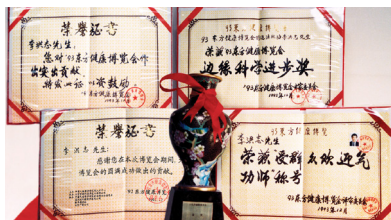 荣誉证书
李洪志先生:
您对'93东方健康博览会作
出突出贡献
特发此证 以资鼓励
'93东方健康博览会
荣获'93东方健康博览会
边缘科学进步奖
'93东方健康博览会
1993年12月
荣誉证书
李洪志先生:
感谢您在本次博览会期间
博览会的圆满成功做出的贡献。
'93东方健康博览
李洪志先生
荣获受群众欢迎气
功师"称号
'93东方健康博览会
1993年12月